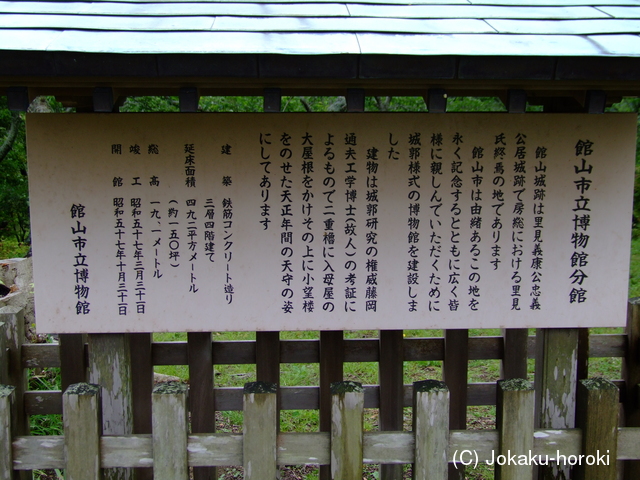 館山市立博物館分館
館山城跡は里見義康公忠義
公居城跡で房総における里見
氏終焉の地であります
館山市は由緒あるこの地を
永く記念するとともに広く皆
様に親しんでいただくために
城郭様式の博物館を建設しま
した
建物は城郭研究の権威藤岡
通夫工学博士(故人)の考証に
よるもので二重櫓に入母屋の
大屋根をかけその上に小望楼
をのせた天正年間の天守の姿
にしてあります
建築 鉄筋コンクリート造り
三層四階建て
延床面積 四九二平方メートル
(約一五〇坪)
総高 一九、一メートル
竣工 昭和五十七年三月三十日
開館 昭和五十七年十月三十一日
館山市立博物館
(C) Jokaku-horoki